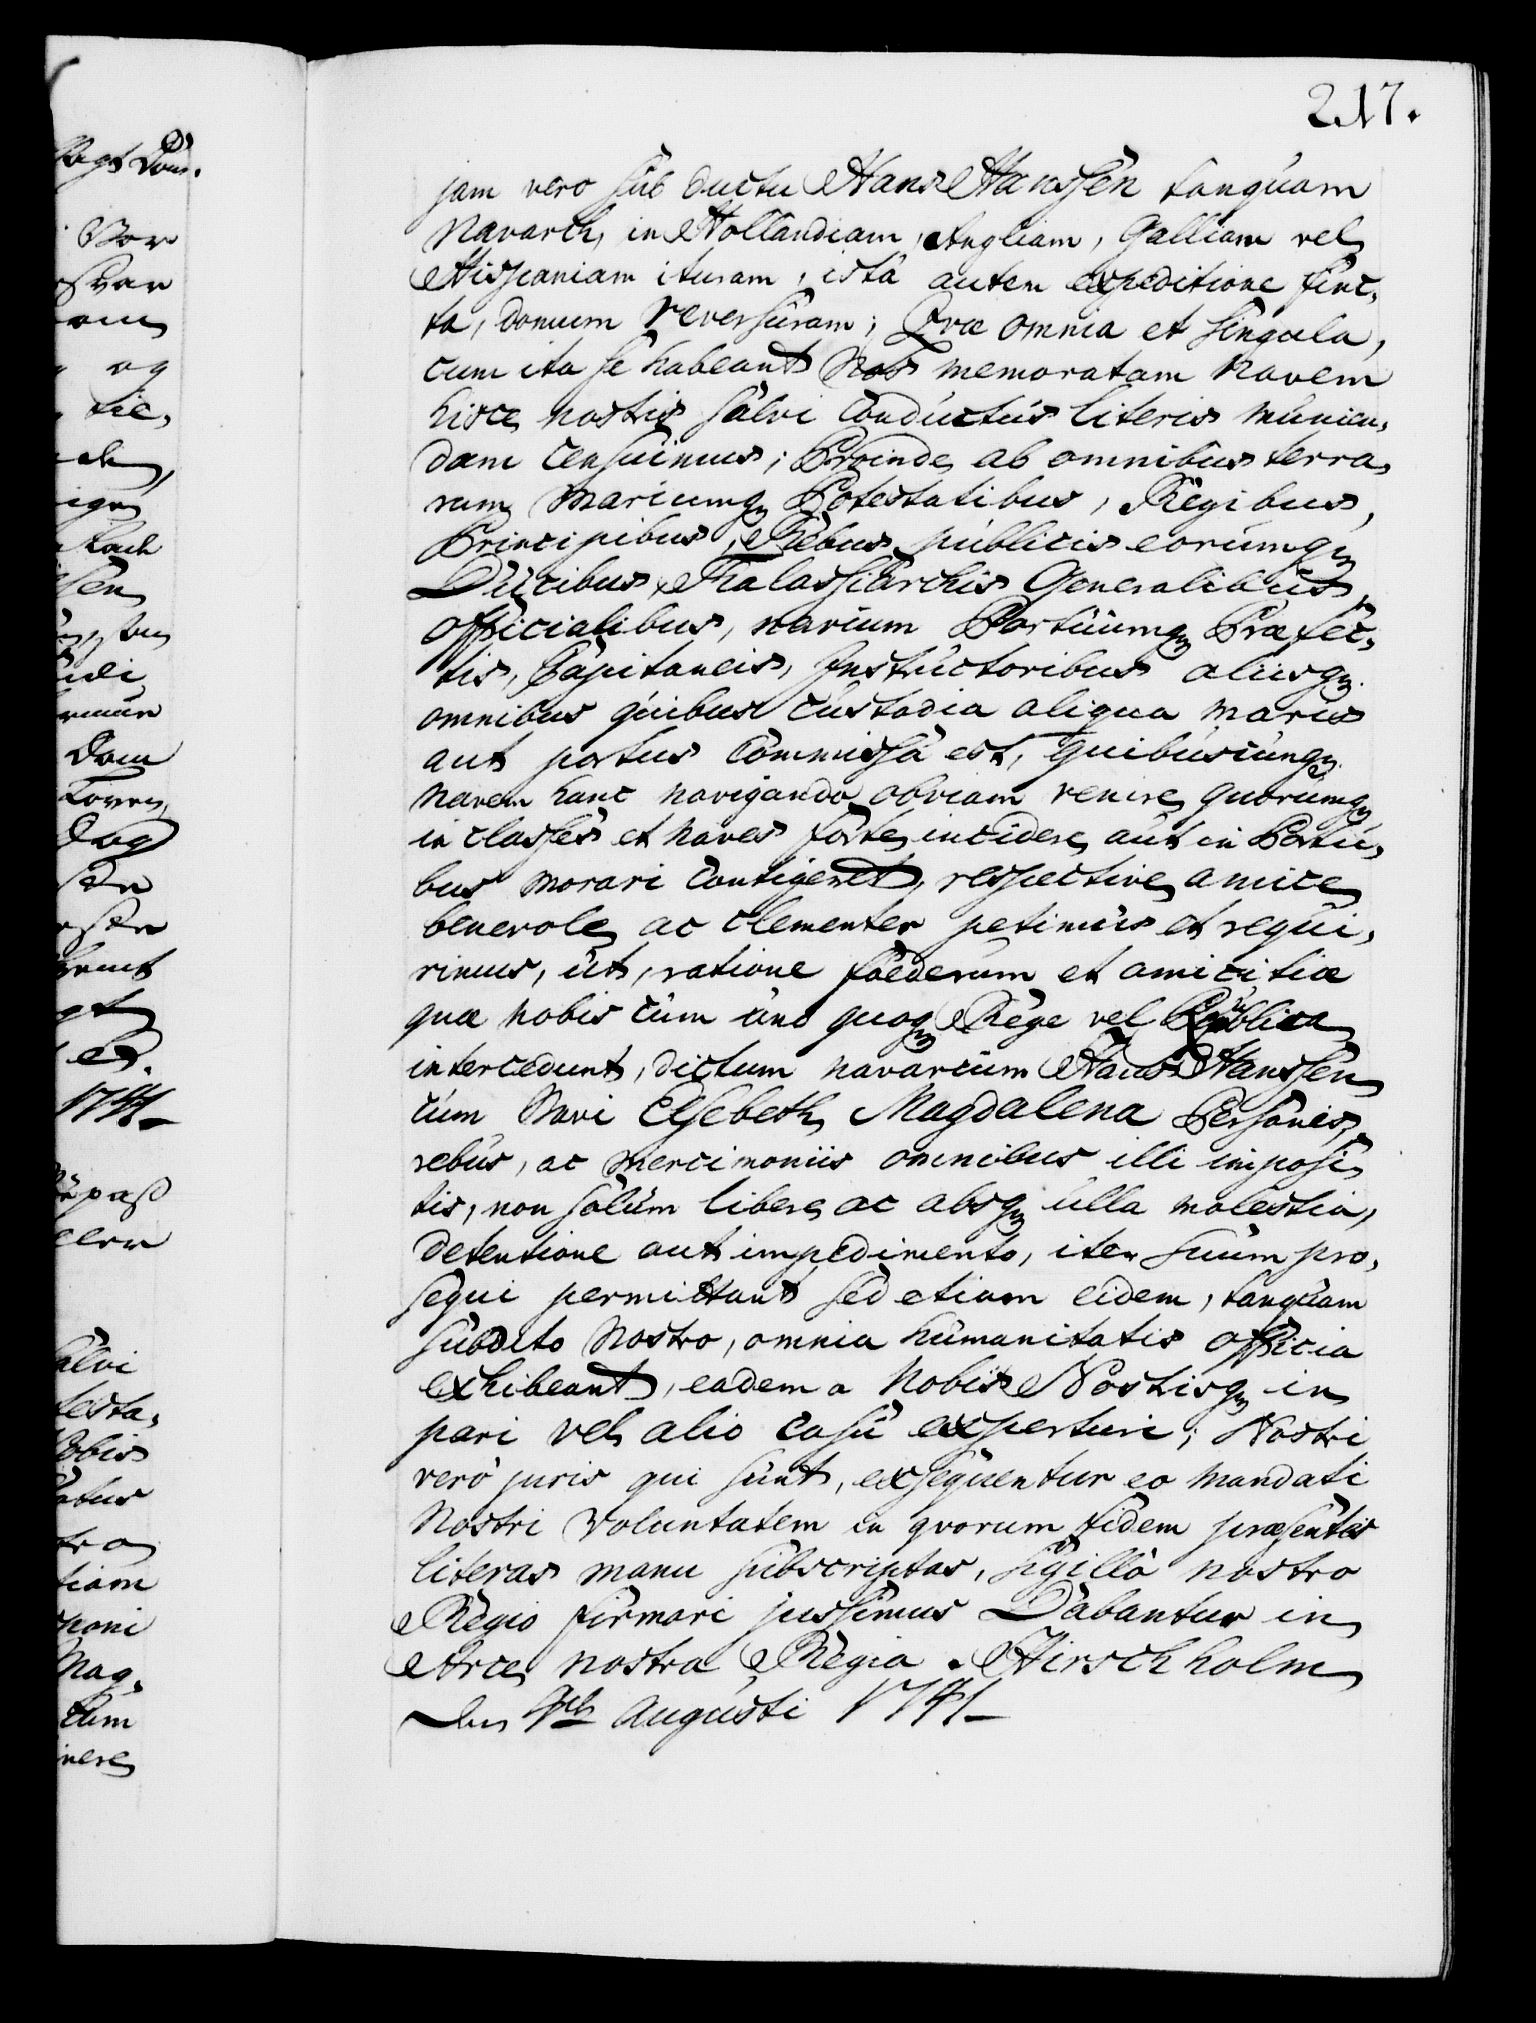 217.
jam vero sub ductu Hans Hanssen tanquam
Navarch, in Hollandiam, Angliam, Galliam vel
Hispaniam ituram, istâ autem expeditione finc,
ta, domum reversuram; Qvæ omnia et singula,
cum ita se habeant Nos memoratam Navem
hisce nostris salvi Conductus literis munien,
dam Censuimus; Proinde ab omnibus terra,
rum Mariumq Potestatibus, Regibus,
Principibus, Rebus publicis eorumq
Ducibus, Thalassiarchis Generalibus,
officialibus, navium Portuumq Præfec,
tis, Capitaneis, Instructoribus aliisq
omnibus quibus custodia aliqua maris
aut portus Commissa est, quibuscunq
Navem hanc navigando obviam venire, quorumq
in classes et naves forte incidere aut in Portu,
bus morari Contigerit, respective amice
benevole ac clementer petimus et requi,
rimus, ut, ratione foederum et amicitiæ
quæ nobis cum uno quoq Rege vel Publica
intercedunt, dictum navarcum Hans Hanssen
cum Navi Elsebeth Magdalena Personis,
rebus, ac mercimoniis omnibus illi imposi
tis, non solum libere ac absq ulla molestia,
detentione aut impedimento, iter suum pro,
sequi permittant sed etiam eidem, tanquam
subdito Nostro, omnia humanitatis officia
exhibeant, eadem a Nobis Nostrisq in
pari vel alio casu experturi; Nostri
verò juris qui sunt, exsequentur eo mandati
Nostri voluntatem in qvorum fidem præsentes
literas manu subscriptas, sigillo nostro
Regio firmari jussimus Dabantur in
Arce nostra Regia Hirschholm
den 4ch Augusti 1741
Vor
og
tie,
igen
sen
Dom
Dag
1741
salvi
testa,
Nobis
tiam
Mag,
tum